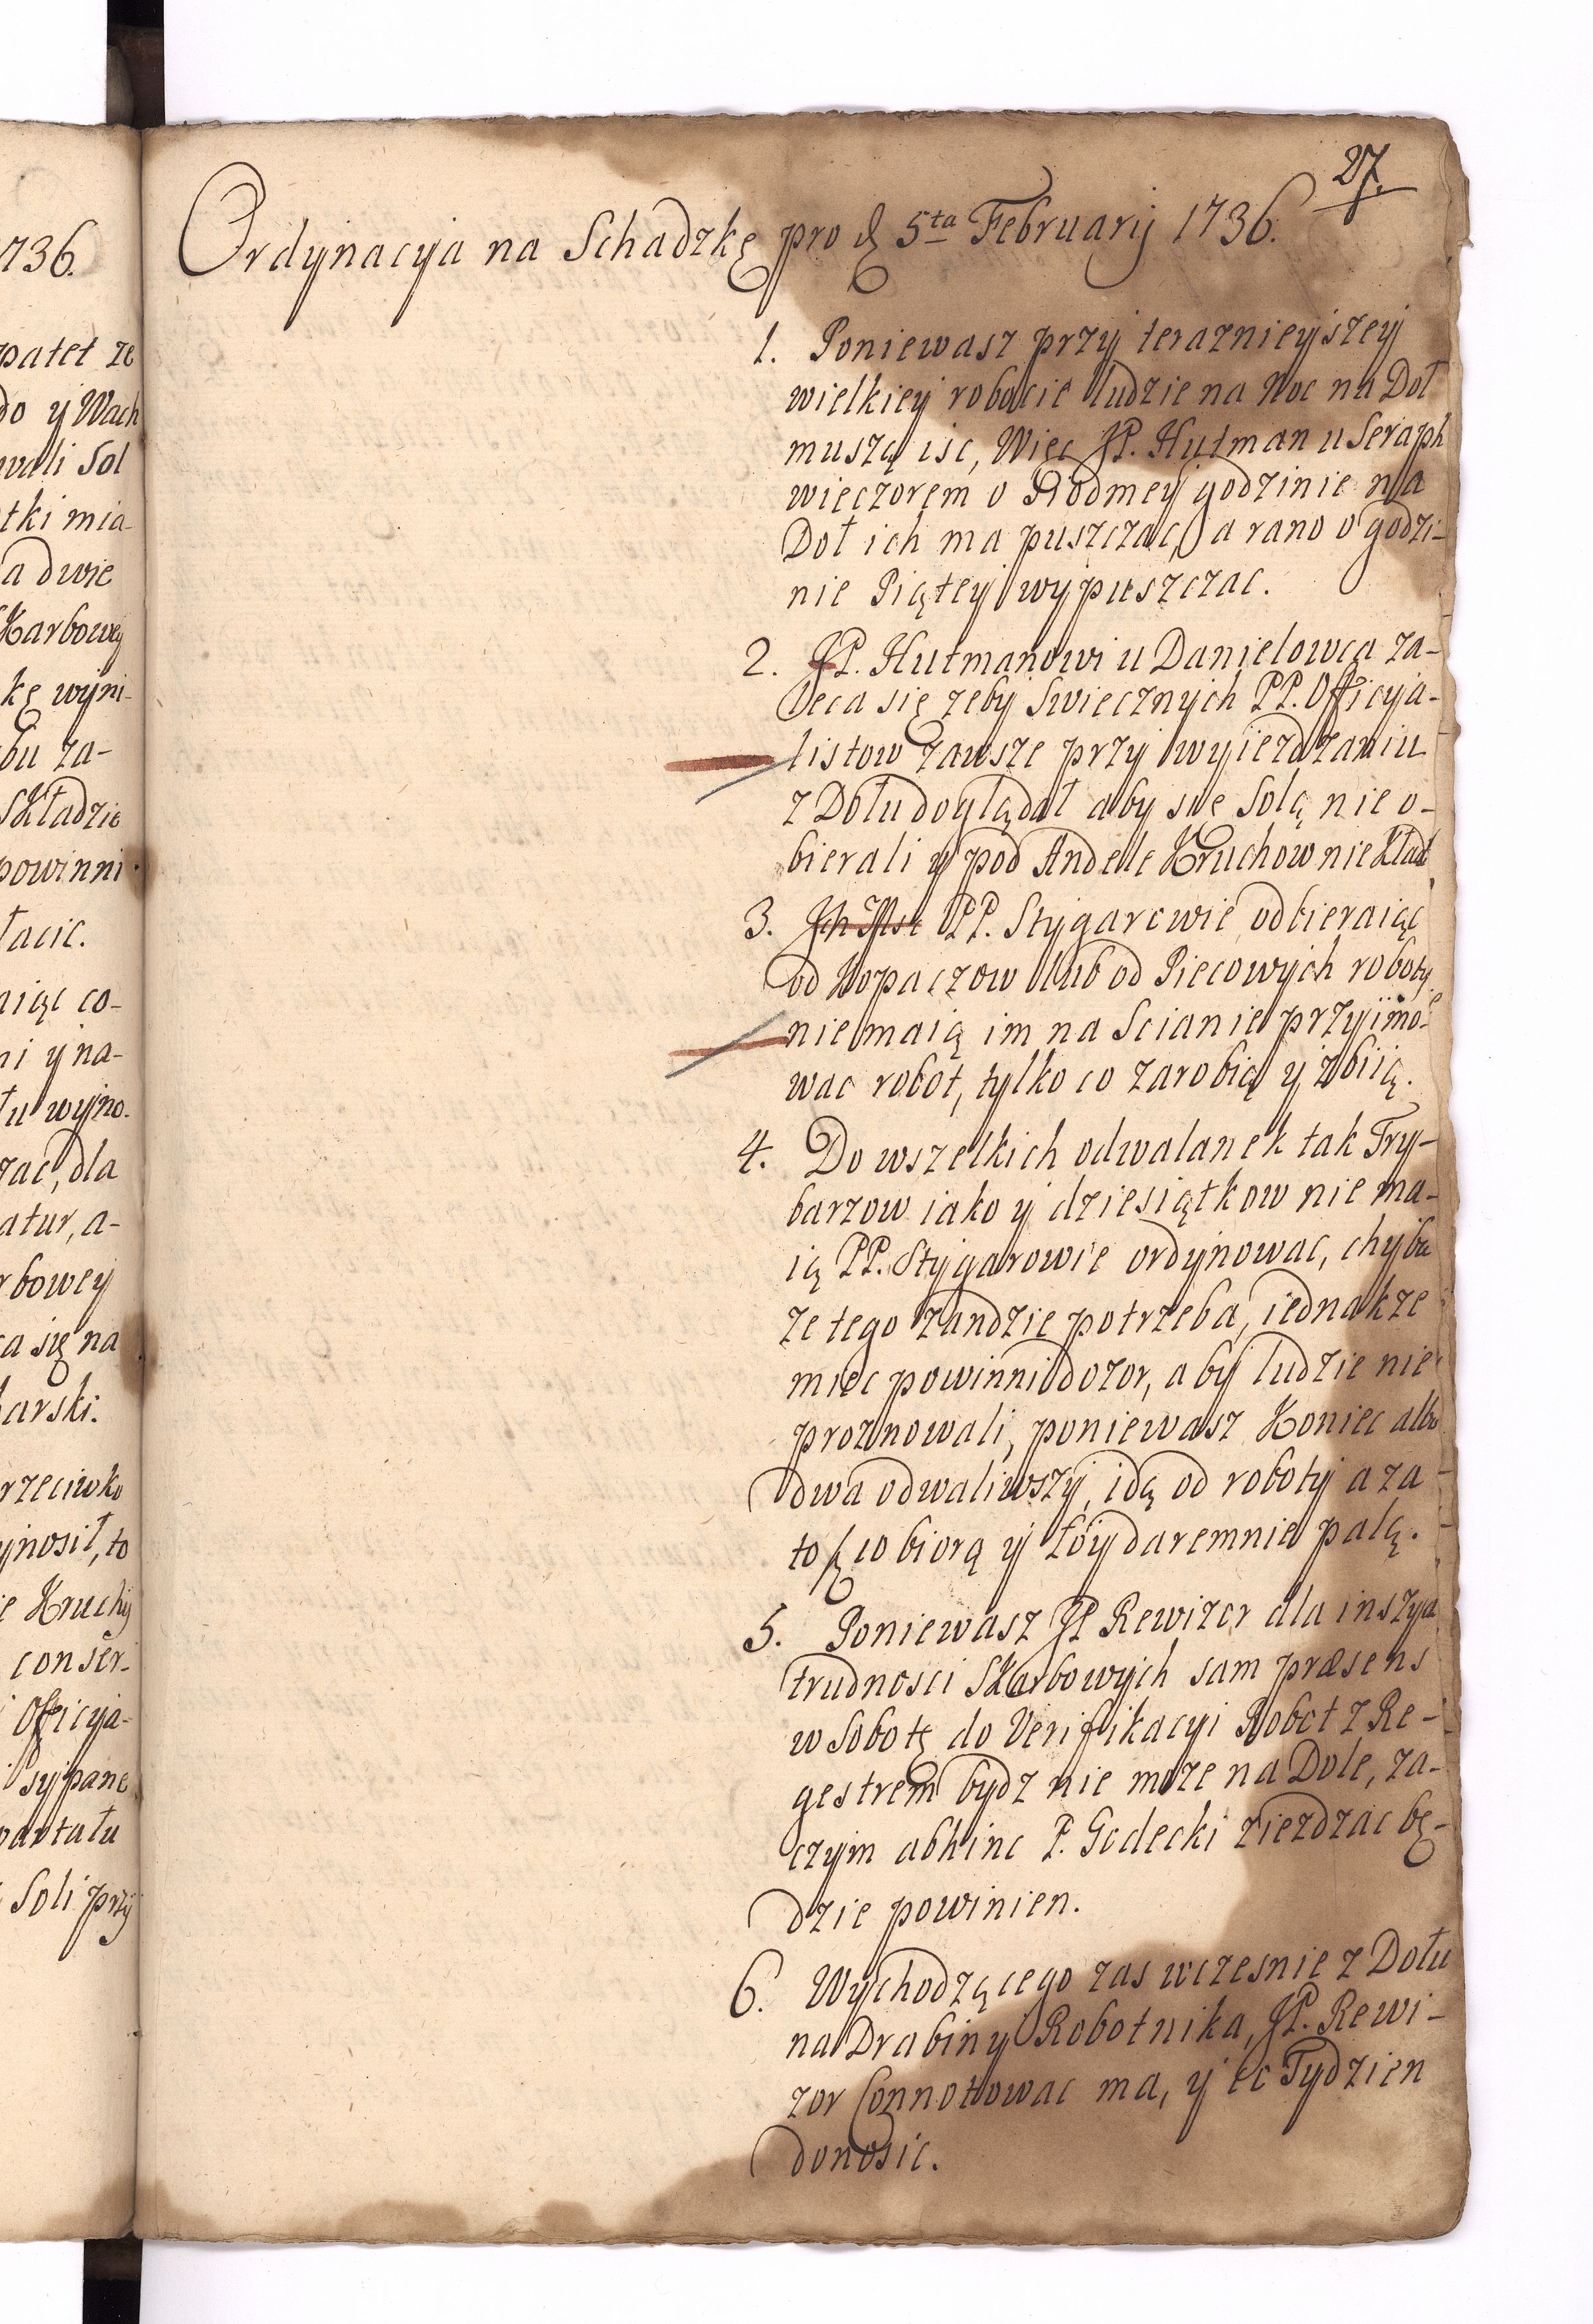 736.
patet ze
do y Wach
wali Sol
tki mia
a dwie
Karbowey
kę wyni-
bu za-
Składzie
powinni
łacic.
aiąc co-
ni y na-
łu wyno-
zac, dla
atur, a-
rbowey
ca się na
karski.
rzeciwko
ynosił, to
ie Kruchy
conser-
i Officya-
i sypane
wartału
Soli przy
27.
Ordynacya na Schadzkę pro d 5ta Februarij 1736.
1. Poniewasz przy teraznieyszey
wielkiey robocie ludzie na Noc na Doł
muszą isc, Więc JP. Hutman u Seraph
wieczorem o Siodmey godzinie na
Doł ich ma puszczac, a rano o godzi-
nie Piątey wypuszczac.
2. JP. Hutmanowi u Danielowca za-
leca się zeby Swiecznych PP. Officya-
listow zawsze przy wyiezdzaniu
z Dołu doglądał aby się Solą nie o-
bierali y pod Andele Kruchow nie kład
3. Ich Mść PP. Stygarowie odbieraiąc
od Kopaczow lub od Piecowych roboty
nie maią im na Scianie przyimo-
wac robot, tylko co zarobią y zbiią.
4. Do wszelkich odwalanek tak Try-
barzow iako y dziesiątkow nie ma-
ią PP. Stygarowie ordynowac, chyba
ze tego zandzie potrzeba, iednakze
miec powinni dozor, aby ludzie nie
proznowali, poniewasz Koniec albo
dwa odwaliwszy, idą od roboty a za
to biorą y Łoy daremnie palą.
5. Poniewasz JP Rewizor dla inszych
trudnosci Skarbowych sam præsens
w Sobotę do Verifikacyi Robot z Re-
gestrem bydz nie moze na Dole, za-
czym abhinc P. Godecki ziezdzac bę-
dzie powinien.
6. Wychodzącego zas wczesnie z Dołu
na Drabiny Robotnika, JP. Rewi-
zor Connotowac ma, y co Tydzien
donosic.